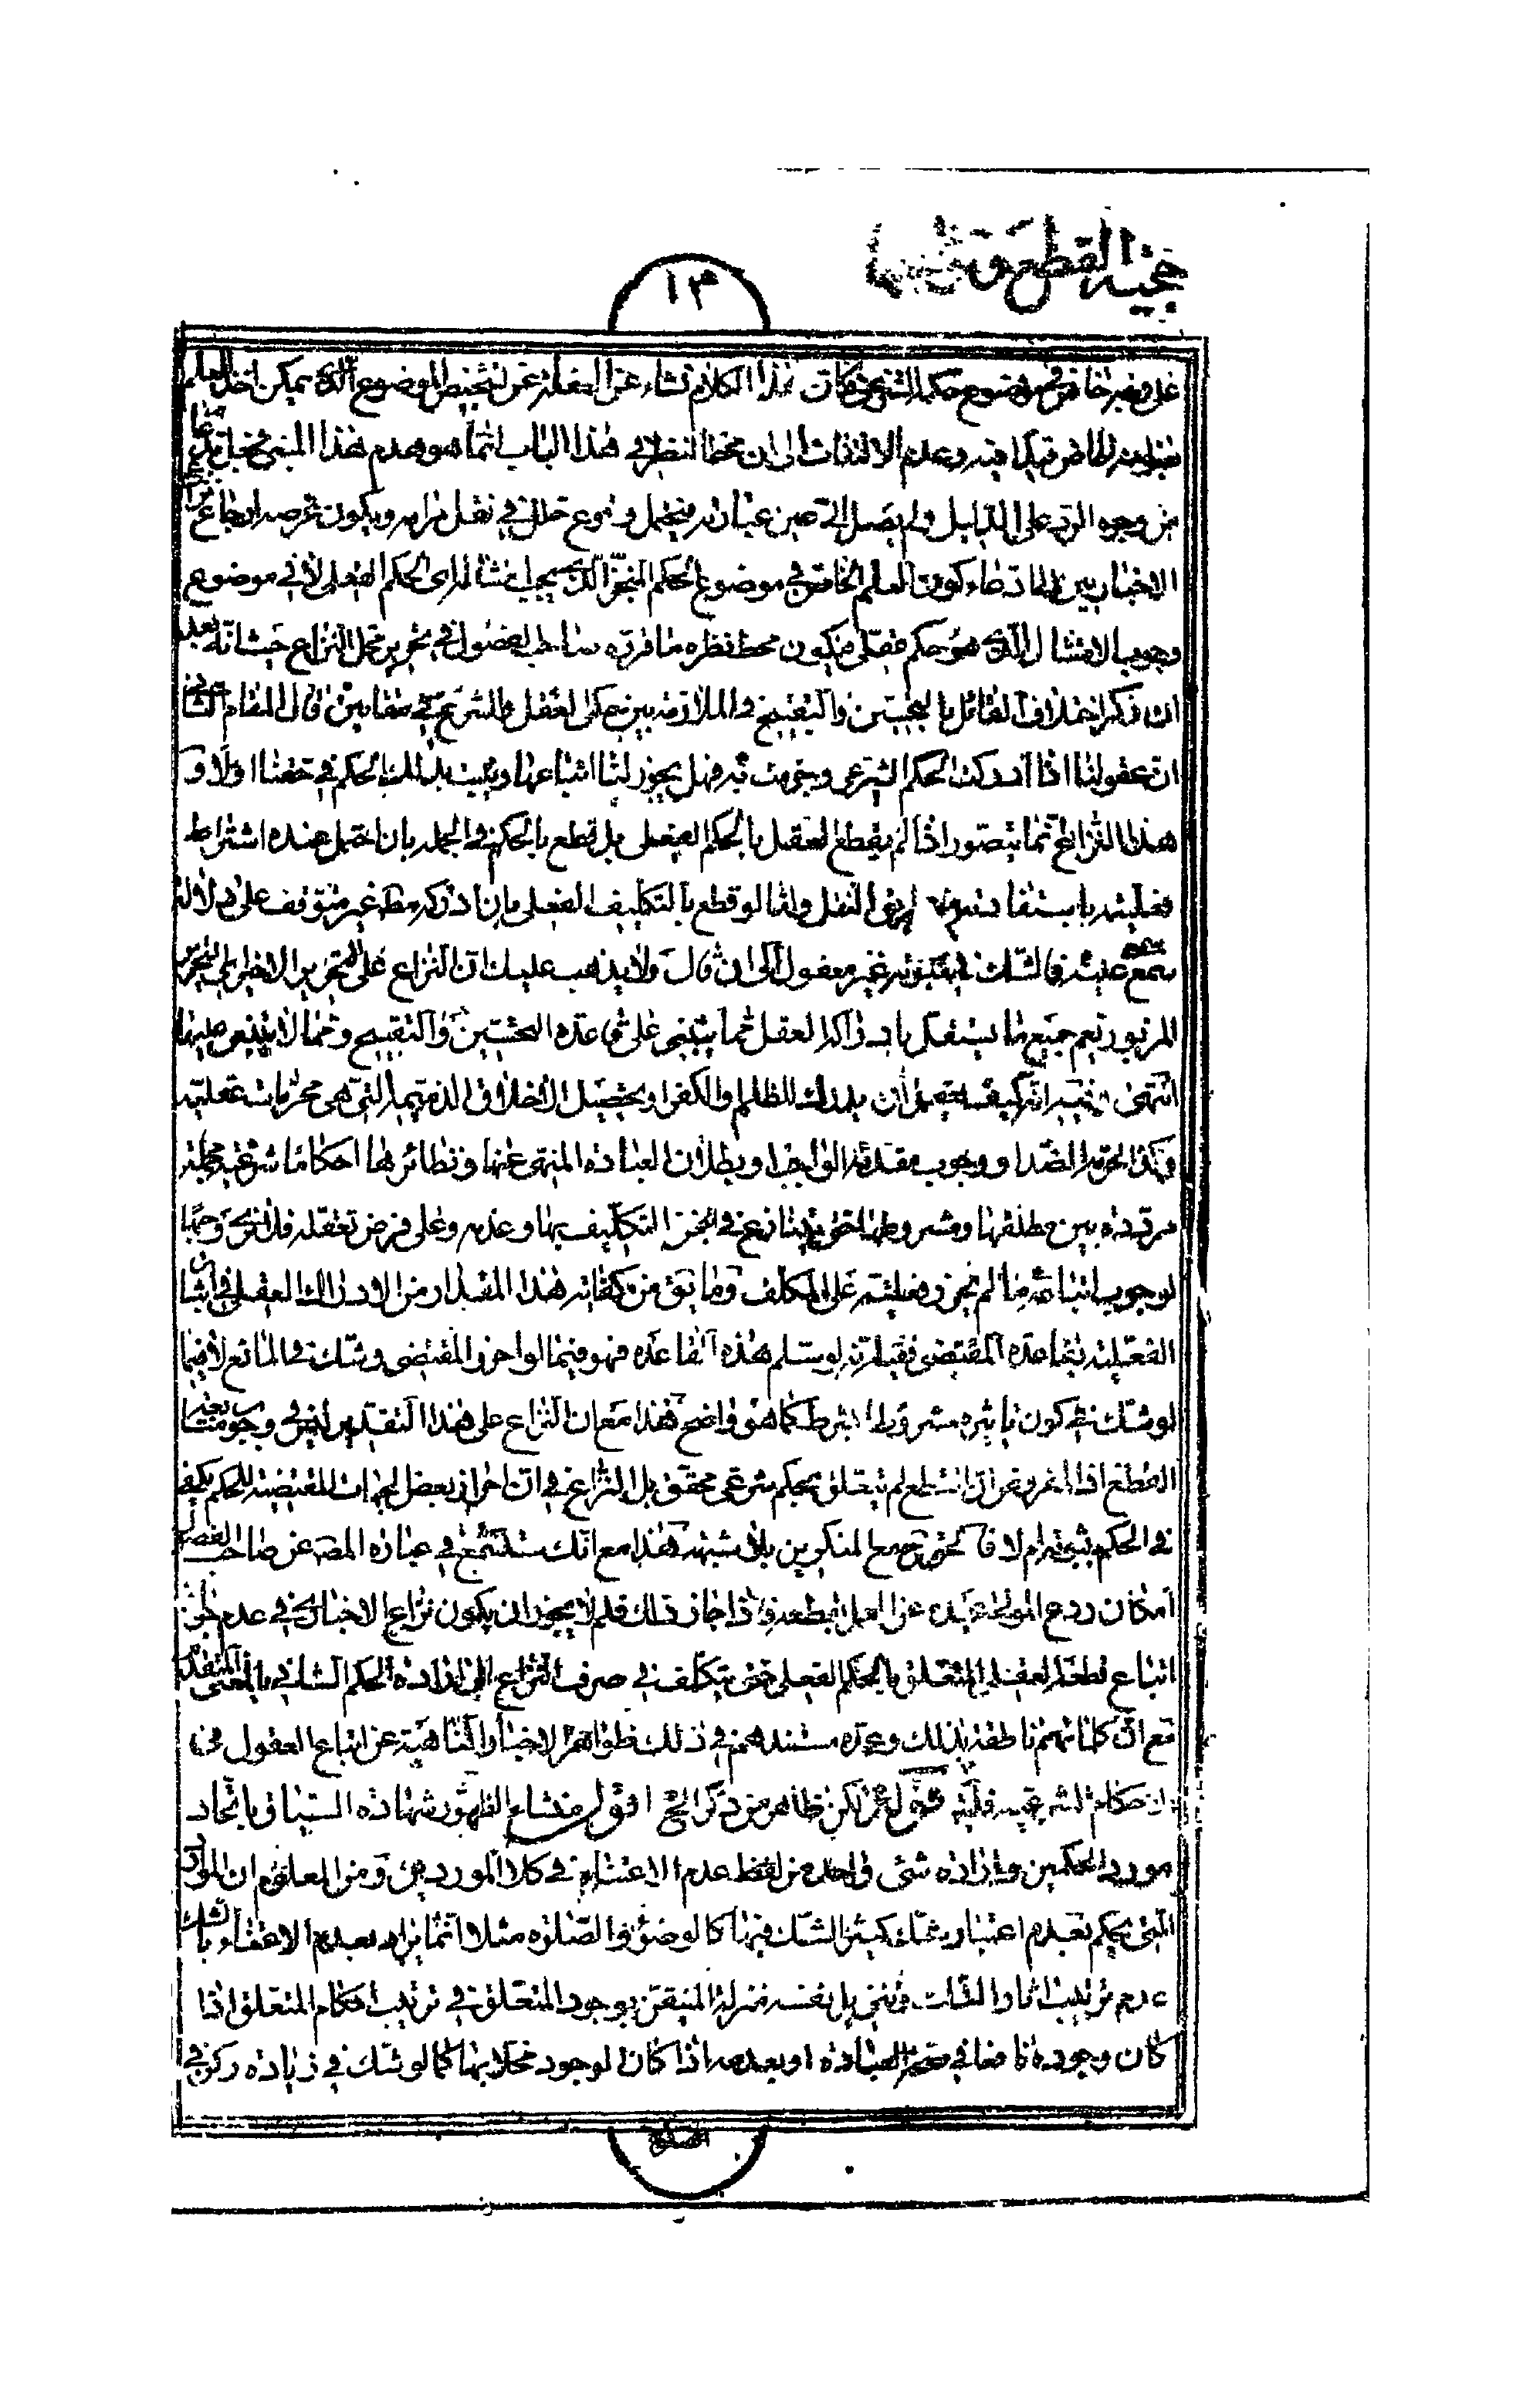 حجية القطع
١٣
على وجه خاص في موضوع حكم الشرعي وكان هذا الكلام نشاء عن الغفلة عن تشخيص الموضوع الذي يمكن اخذ العلم
الخاص قيدا فيه وعدم الالتفات الى ان محط النظر في هذا الباب انما هو هدم هذا المبنى
من وجوه الرد على الدليل ولم يصل الى عين عبارته فيحتمل وقوع خلل في نقل مرامه ويكون غرضه ارجاع
الاخباريين الى ادعاء كون العلم الخاص في موضوع الحكم المنجز الذي يجب امتثاله اى الحكم الفعلى لا في موضوع
وجوب الامتثال الذي هو حكم عقلى فيكون محط نظره ما افرده صاحب الفصول في تحرير محل النزاع حيث انه بعد
ان ذكر اختلاف القائل بالتحسين والتقبيح والملازمة بين حكمى العقل والشرع في مقامين قال المقام الثانى
ان عقولنا اذا ادركت الحكم الشرعى وجزمت به فهل يجوز لنا اتباعها ويثبت بذلك الحكم في حقنا اولا و
هذا النزاع انما يتصور اذا لم يقطع العقل بالحكم الفعلى بل قطع بالحكم في الجملة بان احتمل عنده اشتراط
فعليته باستفادته من طريق النقل واما لو قطع بالتكليف الفعلى بان ادركه مطلقا غير متوقف على دلالة
سمع عليه فالشك في ثبوته غير معقول الى ان قال ولا يذهب عليك ان النزاع على التحرير الاخير
المزبور يعم جميع ما يستقل بادراكه العقل مما يبتنى على قاعدة التحسين والتقبيح ومما لا يبتنى عليها
انتهى وفيه انه كيف يعقل ان يدرك للظلم والكفر او تحصيل الاخلاق الذميمة التى هى محرمات عقلية
وكذا لحرمة الضد او وجوب مقدمة الواجب او بطلان العبادة المنهى عنها ونظائرها احكاما شرعية مجملة
مرددة بين مطلقها ومشروطها حتى يتنازع في تنجز التكليف بها وعدمه وعلى فرض تعقله فلا نرى وجها
لوجوب اتباعه ما لم نحرز فعليته على المكلف وما يق من كفاية هذا المقدار من الادراك العقلى في اثبات
الفعلية بقاعدة المقتضى ففيه انه لو سلم هذه القاعدة فهو فيما لو احرز المقتضى وشك في المانع لا فيما
لو شك في كون تاثيره مشروطا بشرط كما هو واضح هذا مع ان النزاع على هذا التقدير ليس في وجوب متابعة
القطع اذ المفروض ان القطع لم يتعلق بحكم شرعى محقق بل النزاع في ان احراز بعض الجهات المقتضية للحكم يكفى
في الحكم بثبوته ام لا فالحق مع المنكرين بلا شبهة هذا مع انك ستسمع في عبارة المصنف عن صاحب الفصول
امكان ردع المولى عبده عن العمل بقطعه فاذا جاز ذلك فلم لا يجوز ان يكون نزاع الاخبارى في عدم جواز
اتباع قطع العقل المتعلق بالحكم الفعلى حتى يتكلف في صرف النزاع الى ارادة الحكم الشانى بالمعنى المتقدم
مع ان كلماتهم ناطقة بذلك وعمدة مستندهم في ذلك ظواهر الاخبار الناهية عن اتباع العقول في
الاحكام الشرعية فليتأمل قوله لكن ظاهر من ذكر الخ اقول منشاء الظهور شهادة السياق باتحاد
مورد الحكمين وارادة شئ واحد من لفظ عدم الاعتناء في كلا الموردين ومن المعلوم ان الموارد
التى يحكم بعدم اعتبار شك كثير الشك فيها كالوضوء والصلوة مثلا انما يراد بعدم الاعتناء بالشك
عدم ترتيب اثار الشك فينزل نفسه منزلة المتيقن بوجود المتعلق في ترتيب احكام المتعلق اذا
كان وجوده نافعا في صحة العبادة او بعدمه اذا كان الوجود مخلا بها كما لو شك في زيادة ركن في
الصلوة